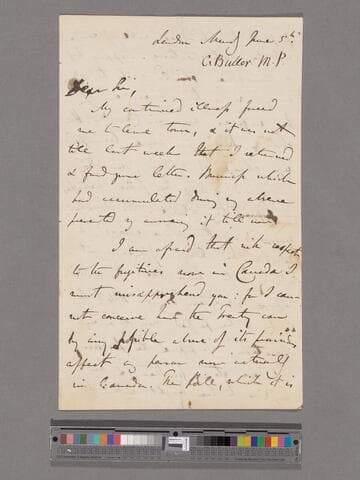 London Mondy June 5th
C. Buller M.P.
Dear Sir,
My continued illness forced
me to leave town, & it was not
till last week that I returned
& found your letter. Business which
had accumulated during my absence
prevented my answering it till now.
I am afraid that with respect
to the fugitives now in Canada I
must misapprehend you: for I can-
not conceive how the Treaty can
by any possible abuse of its provisions
affect any person now actually
in Canada. The Bill, which it is